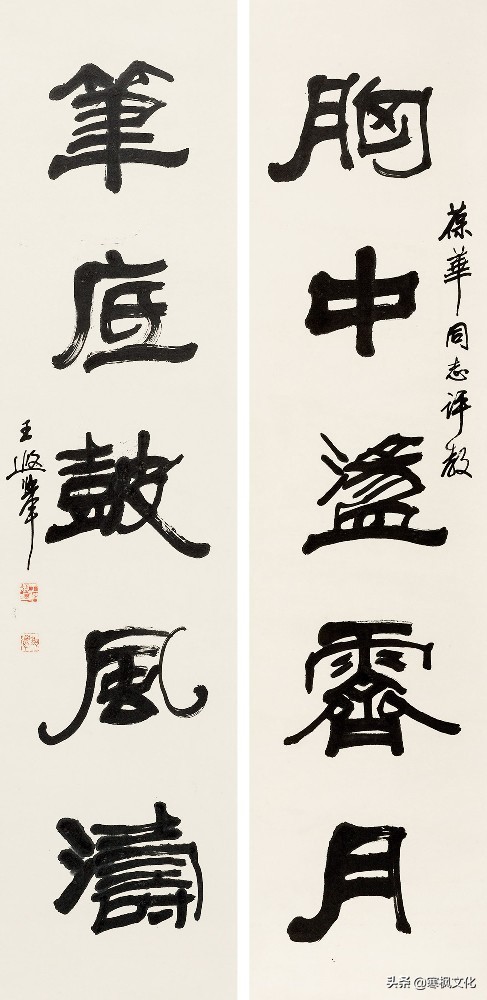 葆華同志评教
胸中盪霽月
筆底鼓風濤
王遐舉
头条@寒枫文化